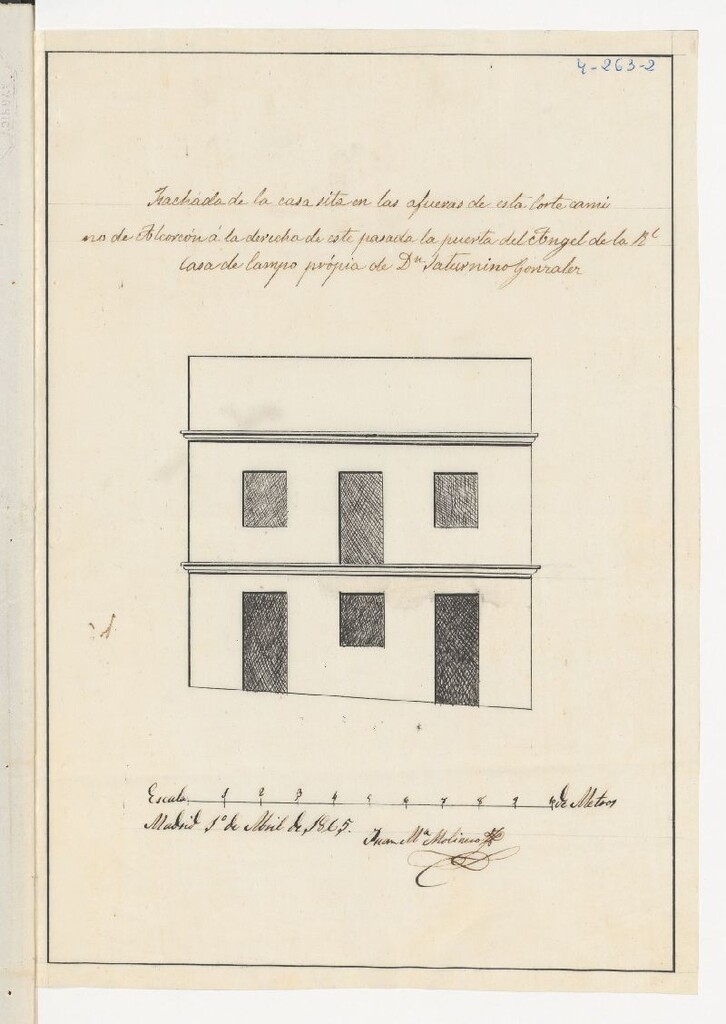 4-263-2
Fachada de la casa sita en las afueras de esta Corte cami
no de Alcorcón á la derecha de este pasada la puerta del Angel de la Rl
Casa de Campo própia de Dn Saturnino Gonzalez
Escala 1 2 3 4 5 6 7 8 9 10 de Metros
Madrid 1º de Abril de 1865.
Juan Mª Molinero